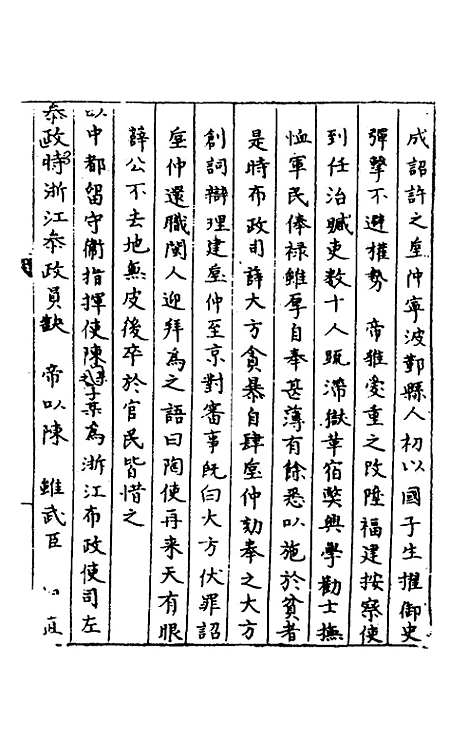 成詔許之垕仲寧波鄞縣人初以國子生擢御史
彈擊不避權勢　帝雅愛重之改陞福建按察使
到任治贓吏数十人䟽滯獄革宿獘興學勸士撫
恤軍民俸禄雖厚自奉甚薄有餘悉以施於貧者
是時布政司薛大方貪暴自肆垕仲劾奉之大方
創詞辯理建垕仲至京對審事旣白大方伏罪詔
垕仲還職閩人迎拜為之語曰陶使再来天有眼
薛公不去地無皮後卒於官民皆惜之
以中都留守衛指揮使陳為浙江布政使司左
叅政時浙江叅政員缺　帝以陳　雖武臣